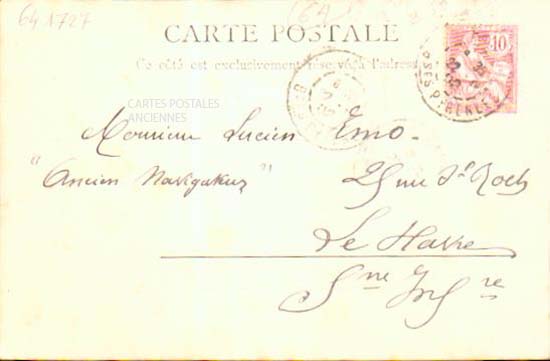 641727
(64)
CARTE POSTALE
Ce côté est exclusivement réservé à l'adresse
10
BSES PYRENEES
CARTES POSTALES
ANCIENNES
Monsieur Lucien Emo-
"Ancien Navigateur" 25 rue St Roch
Le Havre
Sne Infre